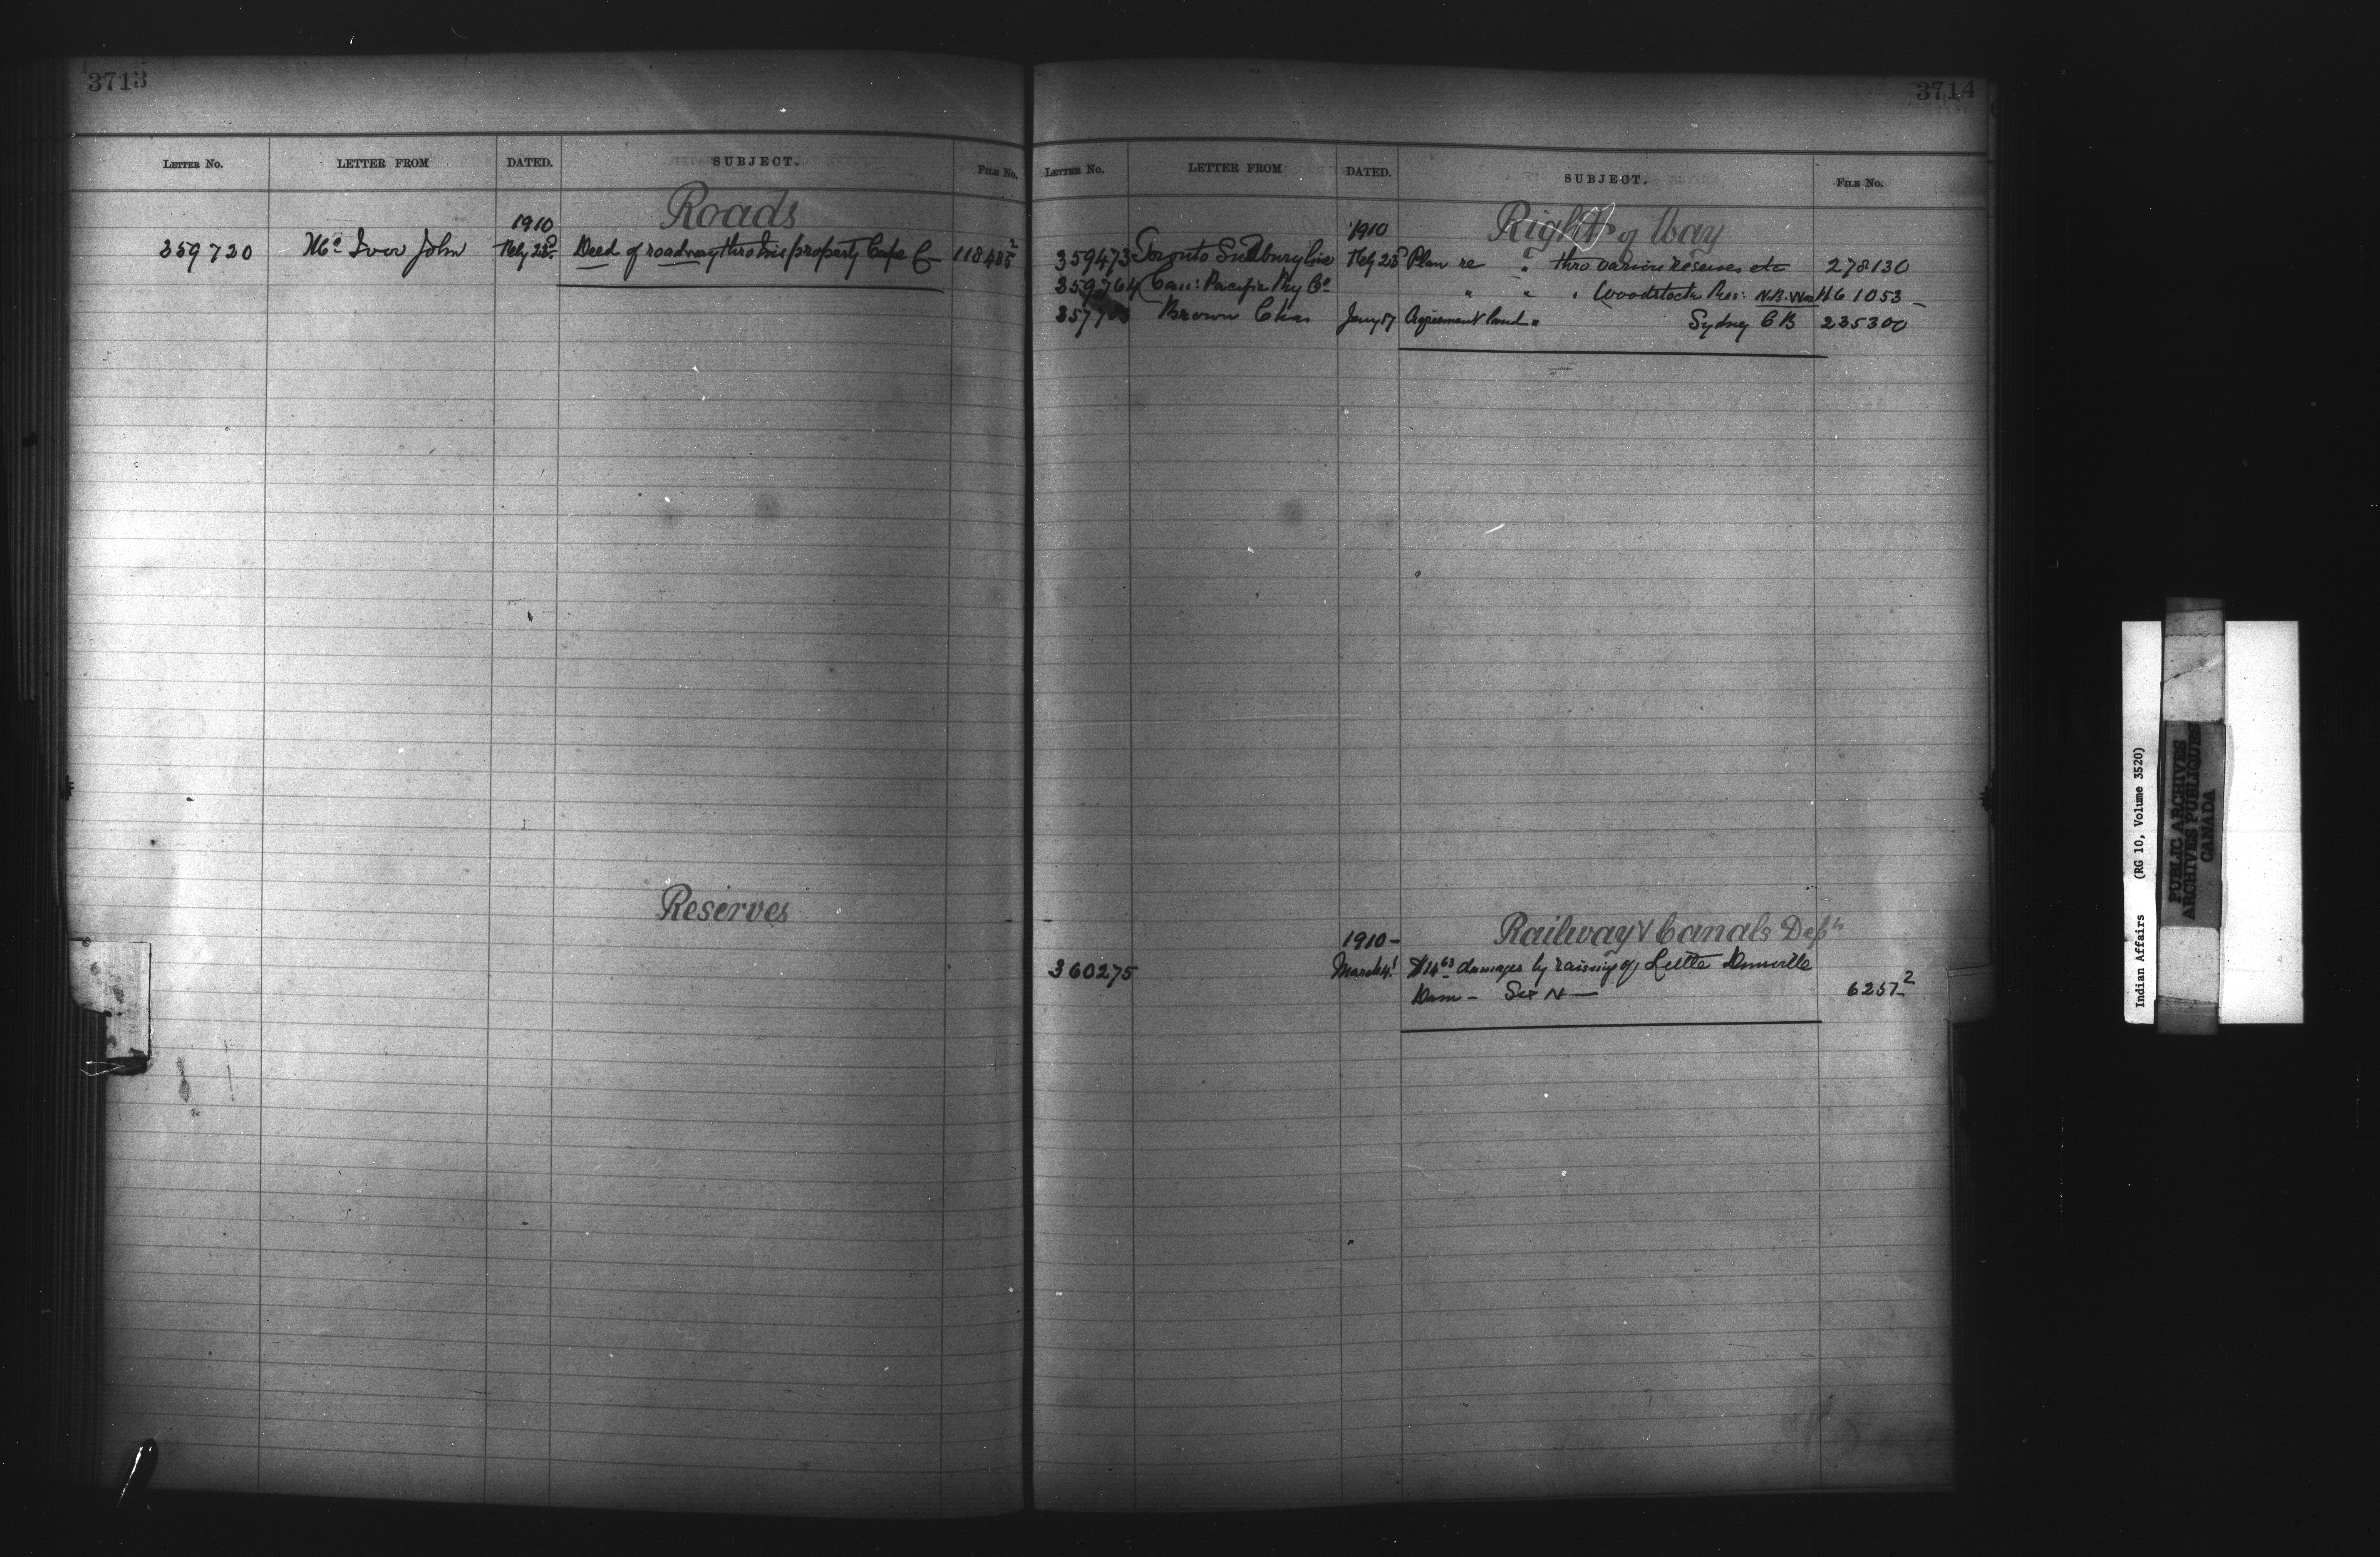 3713
LETTER No. LETTER FROM DATED. SUBJECT. FILE No.
Roads
1910
359720 Mc Ivor John Feby 23d Deed of roadway thro his property Cape C 118485 2
Reserves
3714
LETTER No. LETTER FROM DATED. SUBJECT. FILE No.
Right of Way
1910
359473 Toronto Sudbury line Feby 23 Plan re " thro various reserves etc 278130
359764 Can: Pacific Ry Co " " " Woodstock Res: N.B.
Brown Chas Jany 17 Agreement land " Sydney C B 235300
Railway & Canals Dept
1910 -
360275 March 4 damages by raising of Dunnville
Dam - Six N - 6257 2
Indian Affairs (RG 10, Volume 3520)
PUBLIC ARCHIVES
ARCHIVES PUBLIQUES
CANADA